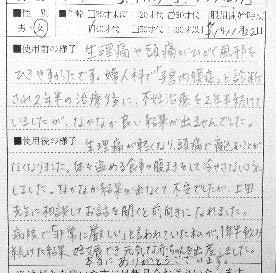 ■性別 ■年齢 □20才才代 □30才代
男・女
■使用前の様子 生理痛や頭痛がひどく風邪を
ひきやすかったです。婦人科で「子宮内膜症」と診断
され2年半の治療後に、不妊治療を2年半続けて
いましたが、なかなか良い結果が出ませんでした。
■使用後の様子 生理痛が軽くなり、頭痛で寝込むことが
なくなりました。体を温める食事や腹まきをして冷やさないように
しました。なかなか結果が出なくて不安でしたが、上田
先生に相談してお話を聞くと前向きになれました。
病院で「非常に厳しい」と言われていた私が、1年半飲み
続けた結果、自然妊娠でき元気な赤ちゃんを出産しました。
本当にありがとうございます。